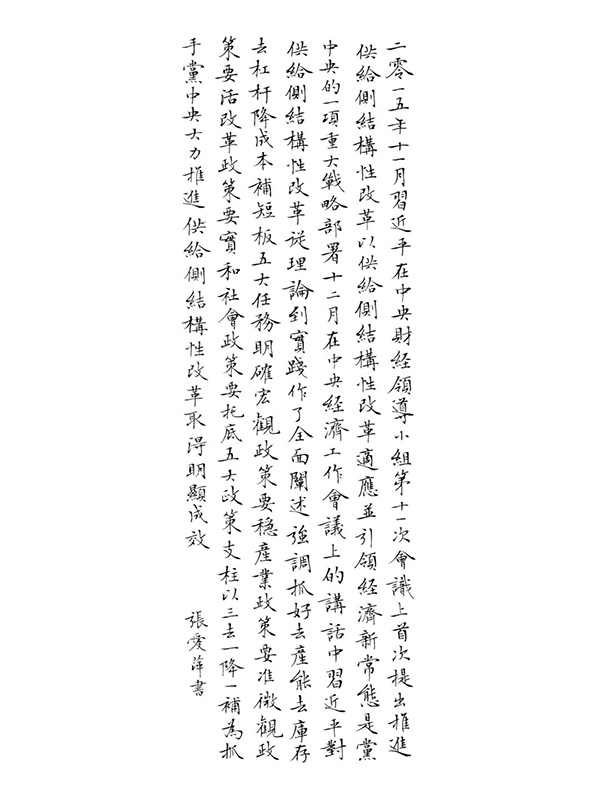 二零一五年十一月習近平在中央財經領導小組第十一次會識上首次提出推進
供給側結構性改革以供給側結構性改革適應並引領經濟新常態是黨
中央的一項重大戰略部署十二月在中央經濟工作會議上的講話中習近平對
供給側結構性改革從理論到實踐作了全面闡述強調抓好去產能去庫存
去杠杆降成本補短板五大任務明確宏觀政策要穩產業政策要准微觀政
策要活改革政策要實和社會政策要托底五大政策支柱以三去一降一補為抓
手黨中央大力推進供給側結構性改革取得明顯成效
張愛萍書